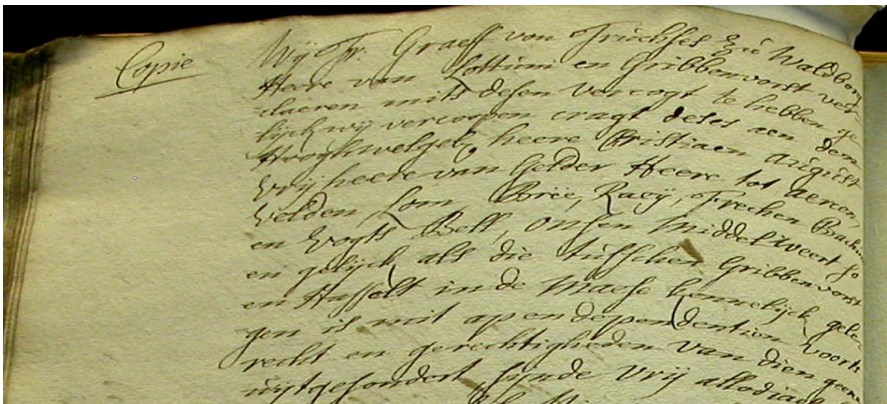 Copie
Wij Fr. Graeff von Trùchses Zù Waldborg
Heere van Lottùm en Gribbenvorst ver
claeren mits desen vercogt te hebben ge
lijck wij vercoopen cragt deses aen den
Hooghwelgeb. heere Cristiaen Aùgùst
vrijheere van Gelder Heere tot aercen,
velden, Lom, Brée, Raeij, Frechen Bachùm
en vogts Bell, onsen middelweert so
en gelijck als die tùsschen Gribbenvorst
en Hasselt in de Maese kennelijck gele-
gen is mit ap en dependentien voorts
recht en gerechtigheden van dien geene
ùijtgesondert sijnde vrij allodiael